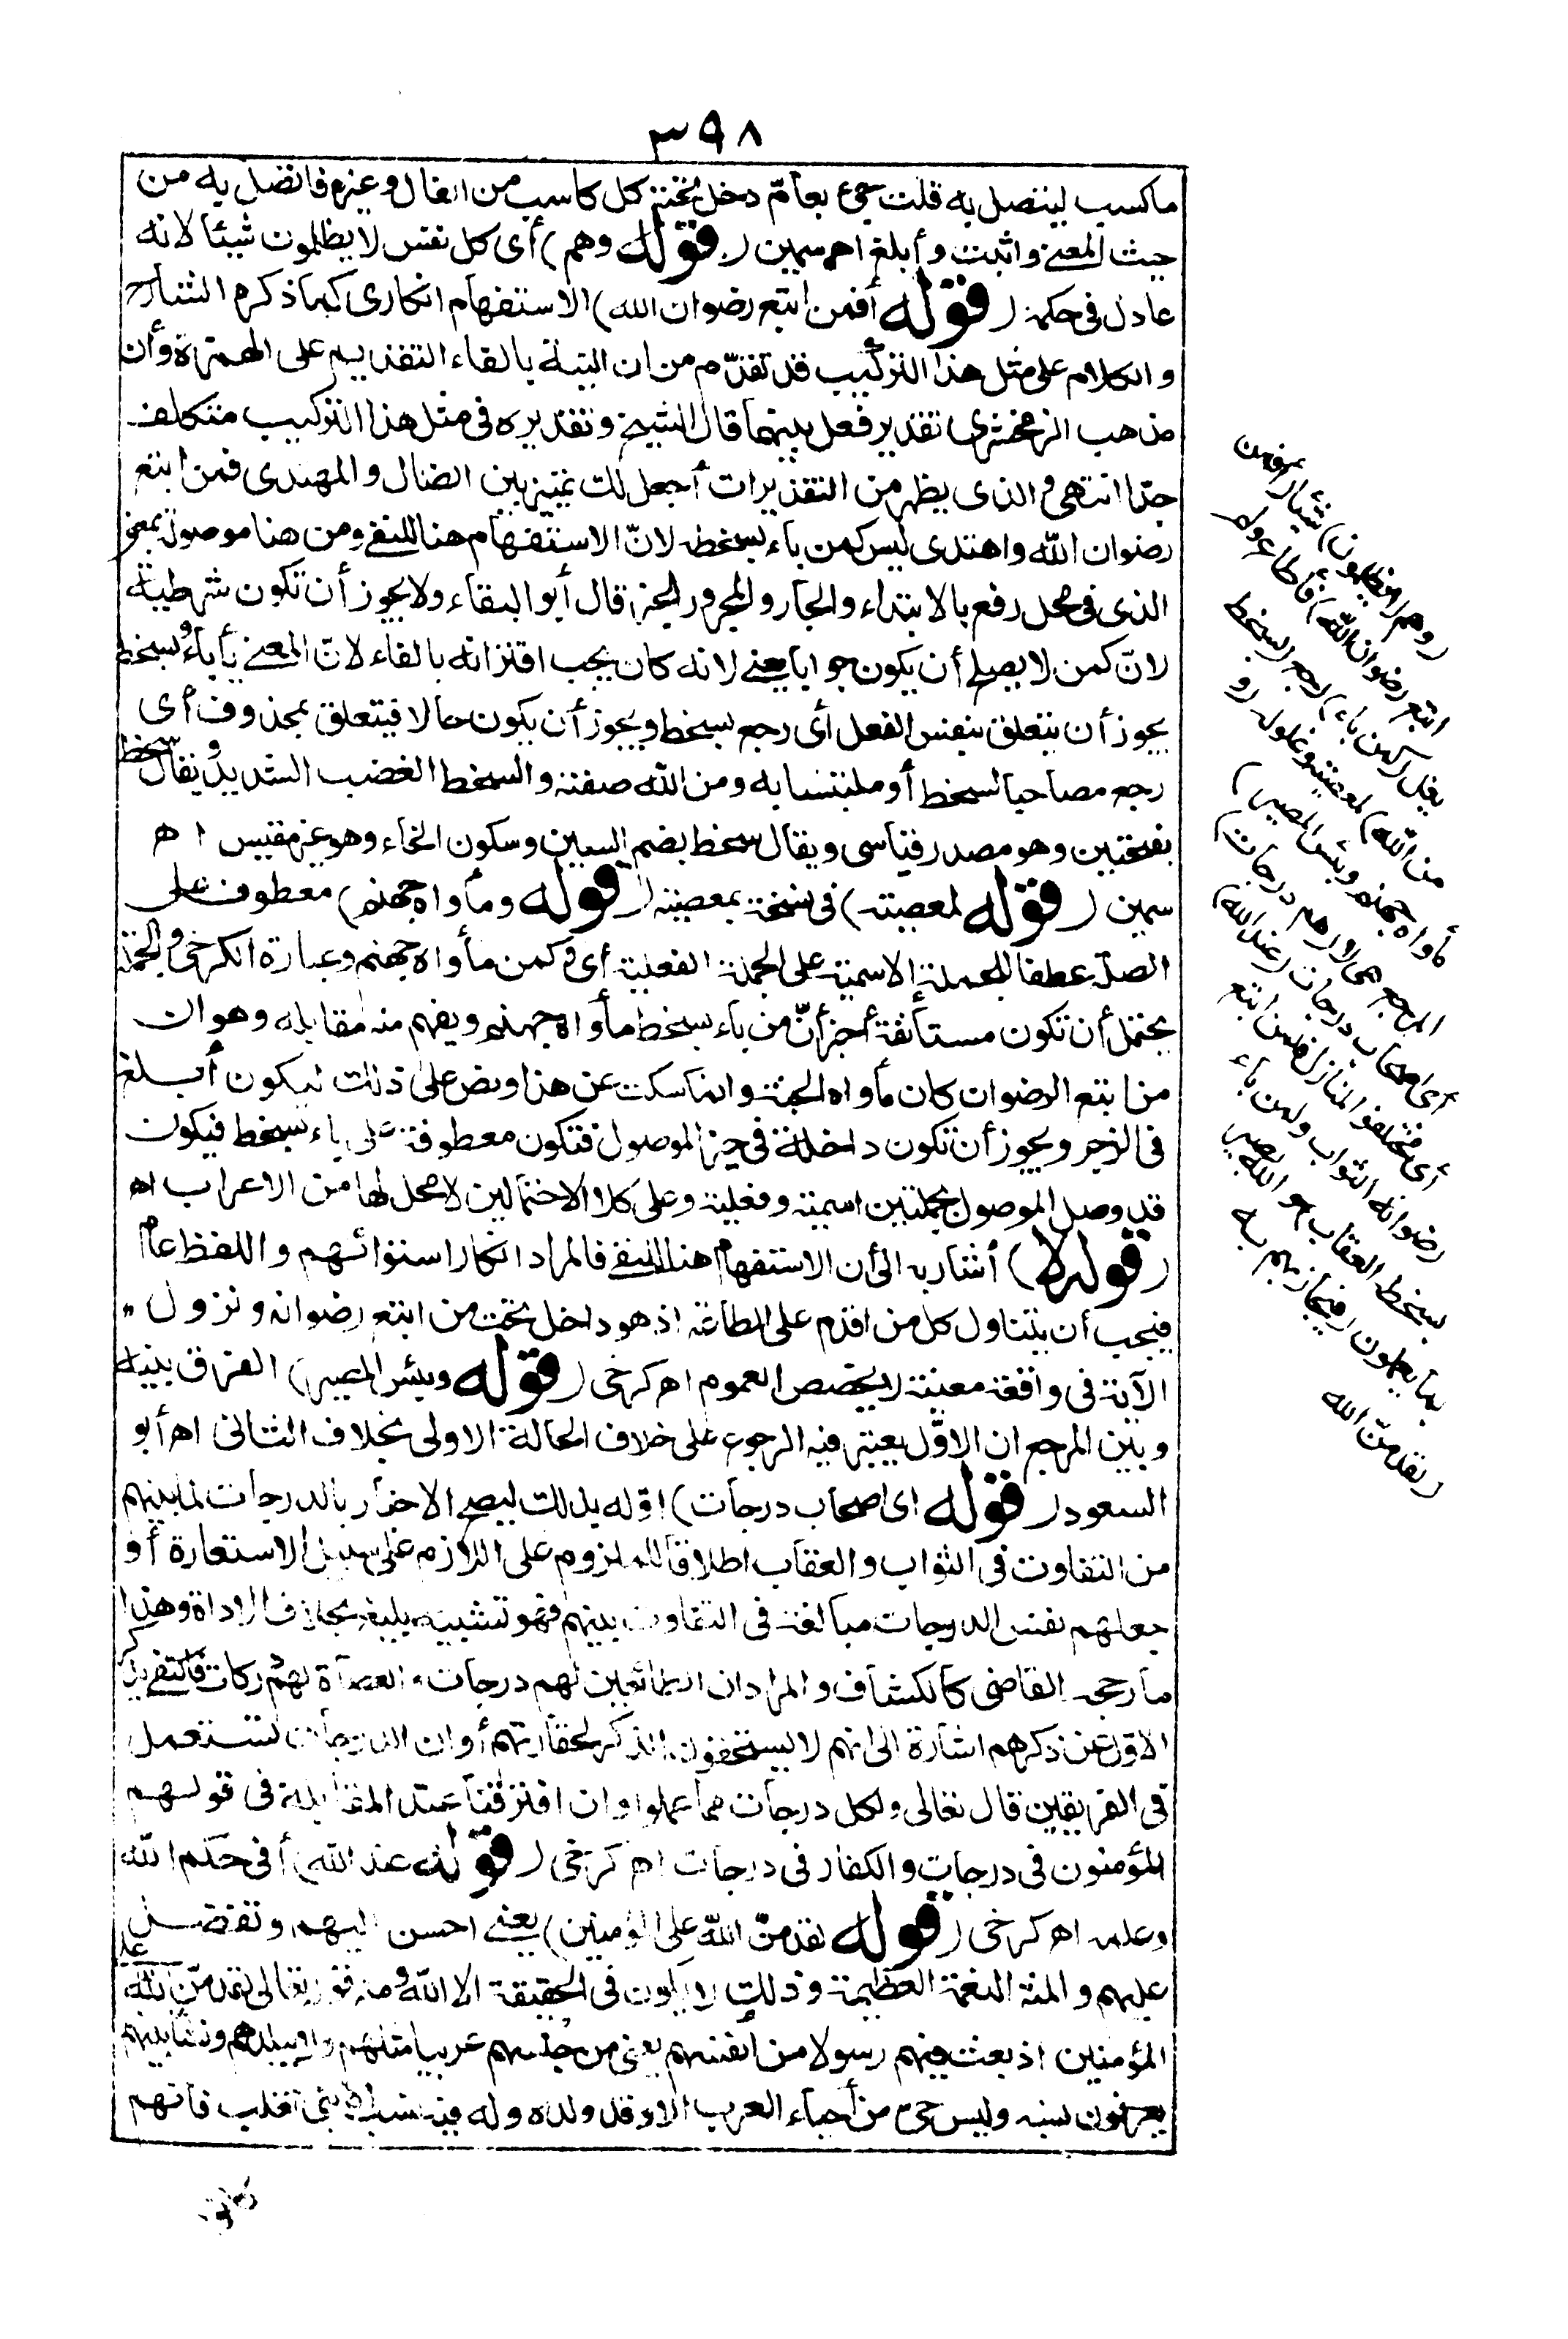 ٣٩٨
ما كسب ليتصل به قلت جىء بعامّ دخل تحته كل كاسب من الغال وغيره فاتصل به من
حيث المعنى واثبت وأبلغ اه سمين (قوله وهم) أى كل نفس لا يظلمون شيئا لانه
عادل فى حكمه (قوله أفمن اتبع رضوان الله) الاستفهام انكارى كما ذكره الشارح
والكلام على مثل هذا التركيب قد تقدّم من ان النية بالفاء التقديم على الهمزة وأن
مذهب الزمخشرى تقدير فعل بينهما قال الشيخ وتقديره فى مثل هذا التركيب متكلف
جدا انتهى والذى يظهر من التقديرات أجعل لك تمييز بين الضال والمهتدى فمن اتبع
رضوان الله واهتدى ليس كمن باء بسخطه لانّ الاستفهام هنا للنفى ومن هنا موصولة بمعنى
الذى فى محل رفع بالابتداء والجار والمجرور الخبر قال أبو البقاء ولا يجوز أن تكون شرطية
لانّ كمن لا يصلح أن يكون جوابا يعنى لانه كان يجب اقترانه بالفاء لانّ المعنى يأباه وبسخط
يجوز أن يتعلق بنفس الفعل أى رجع بسخط ويجوز أن يكون حالا فيتعلق بمحذوف أى
رجع مصاحبا لسخط أو ملتبسا به ومن الله صفته والسخط الغضب الشديد ويقال سخط
بفتحتين وهو مصدر قياسى ويقال سخط بضم السين وسكون الخاء وهو غير مقيس اه
سمين (قوله لمعصيته) فى نسخة بمعصيته (قوله ومأواه جهنم) معطوف على
الصلة عطفا للجملة الاسمية على الجملة الفعلية أى وكمن مأواه جهنم وعبارة الكرخى والجملة
يحتمل أن تكون مستأنفة أخبر أنّ من باء بسخط مأواه جهنم ويفهم منه مقابله وهو ان
من اتبع الرضوان كان مأواه الجنة وانما سكت عن هذا ونص على ذلك ليكون أبلغ
فى الزجر ويجوز أن تكون داخلة فى حيز الموصول فتكون معطوفة على باء بسخط فيكون
قد وصل الموصول بجملتين اسمية وفعلية وعلى كلا الاحتمالين لا محل لها من الاعراب اه
(قوله لا) أشار به الى أن الاستفهام هنا للنفى فالمراد انكار استوائهم واللفظ عام
فيجب أن يتناول كل من اقدم على الطاعة اذ هو داخل تحت من اتبع رضوانه ونزول
الآية فى واقعة معينة لا يخصص العموم اه كرخى (قوله وبئس المصير) الفرق بينه
وبين المرجع ان الاوّل يعتبر فيه الرجوع على خلاف الحالة الاولى بخلاف الثانى اه أبو
السعود (قوله اى اصحاب درجات) اوّله بذلك ليصح الاخبار بالدرجات لما بينهم
من التفاوت فى الثواب والعقاب اطلاقا للملزوم على اللازم على سبيل الاستعارة أو
جعلهم نفس الدرجات مبالغة فى التفاوت بينهم فهو تشبيه بليغ بحذف الاداة وهذا
ما رجحه القاضى كالكشاف والمراد ان الطائعين لهم درجات والعصاة لهم دركات فاكتفى بذكر
الاوّل عن ذكرهم اشارة الى انهم لا يستحقون الذكر لحقارتهم أو ان الدرجات تستعمل
فى الفريقين قال تعالى ولكل درجات مما عملوا وان افترقتا عند المقابلة فى قولهم
المؤمنون فى درجات والكفار فى دركات اه كرخى (قوله عند الله) أى فى حكم الله
وعلمه اه كرخى (قوله لقد منّ الله على المؤمنين) يعنى احسن اليهم وتفضل
عليهم والمنة النعمة العظيمة وذلك لا يكون فى الحقيقة الا الله ومنه قوله تعالى لقد منّ الله على
المؤمنين اذ بعث فيهم رسولا من انفسهم يعنى من جنسهم عربيا مثلهم ولد ببلدهم ونشأ بينهم
يعرفون نسبه وليس حىّ من أحياء العرب الا وقد ولده وله فيه نسب الا بنى تغلب فانهم
(وهم لا يظلمون) شيئا (أفمن
اتبع رضوان الله) فأطاع ولم
يغل (كمن باء) رجع (بسخط
من الله) لمعصيته وغلوله (و
مأواه جهنم وبئس المصير)
المرجع هى لا (هم درجات)
أى اصحاب درجات (عند الله)
أى مختلفو المنازل فلمن اتبع
رضوانه الثواب ولمن باء
بسخطه العقاب (والله بصير
بما يعملون) فيجازيهم به
(لقد منّ الله